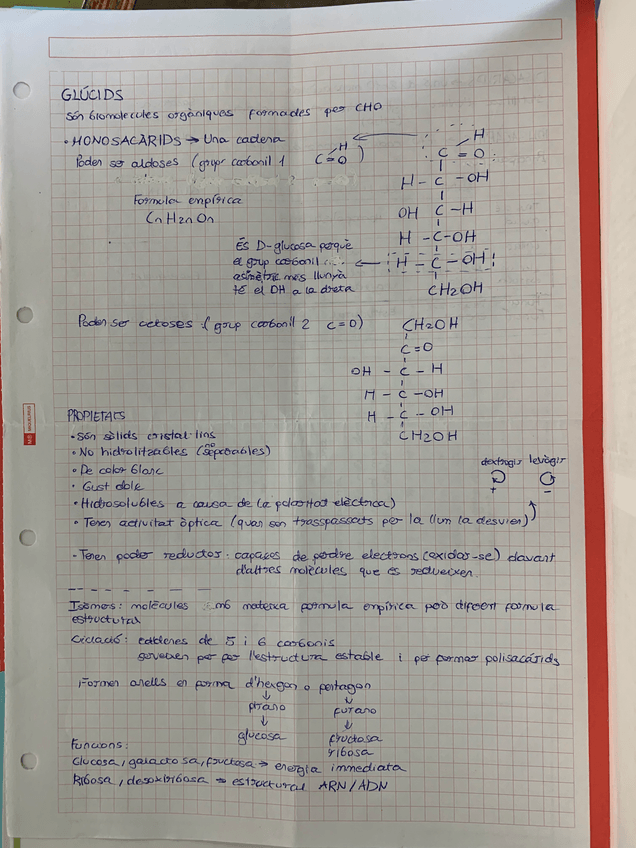 GLÚCIDS
són biomolecules orgàniques formades per CHO
• MONOSACÀRIDS → Una cadena
Poden ser aldoses (grup carbonil 1 C=O H)
Formula empírica
CnH2nOn
H
C = O
H - C - OH
OH C - H
H - C - OH
H - C - OH
CH2OH
És D-glucosa perquè
el grup carbonil
asimètric més llunyà
té el OH a la dreta
Poden ser cetoses (grup carbonil 2 C=O)
CH2OH
C=O
OH - C - H
H - C - OH
H - C - OH
CH2OH
PROPIETATS
• Són sòlids cristal·lins
• No hidrolitzables (no separables)
• De color blanc
• Gust dolç
• Hidrosolubles a causa de la polaritat elèctrica)
• Tenen activitat òptica (quan son trasspassats per la llum la desvien)
dextrogir levògir
+ -
- Tenen poder reductor: capaces de perdre electrons (oxidar-se) davant
d'altres molècules que es redueixen.
Isomers: molècules amb mateixa formula empírica però diferent formula
estructural
Ciclació: cadenes de 5 i 6 carbonis
serveixen per per l'estructura estable i per formar polisacàrids
Formen anells en forma d'hexgon o pentagon
↓ ↓
pirano furano
↓ ↓
glucosa fructosa
ribosa
Funcions:
Glucosa, galactosa, fructosa → energia immediata
Ribosa, desoxiribosa → estructural ARN/ADN
MIQUELRIUS